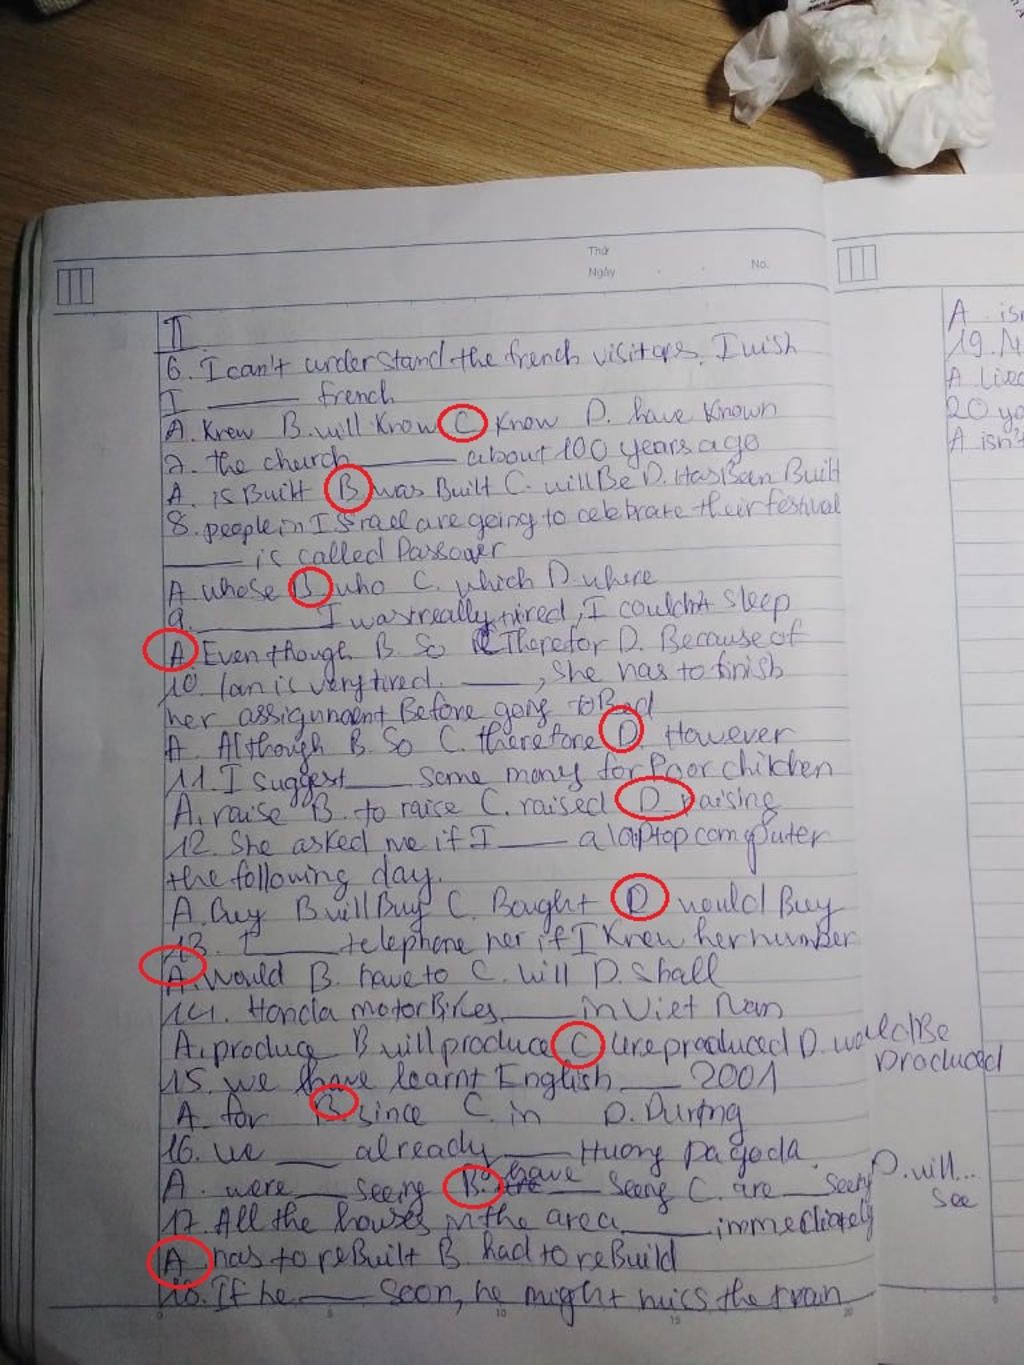 Thứ
Ngày
No.
II
6. I can't understand the french visitors. I wish
I ____ french
A. Knew B. will know C. know D. have known
7. the church ____ about 100 years ago
A. is Built B. was Built C. will Be D. Has Been Built
8. people in ISrael are going to celebrate their festival
____ is called Passover
A. whose B. who C. which D. where
9. ____ I was really tired, I couldn't sleep
A. Even though B. So C. Therefor D. Because of
10. Ian is very tired. ____, she has to finish
her assignment Before going to Bed
A. Although B. So C. therefore D. However
11. I suggest ____ some money for Poor children
A. raise B. to raise C. raised D. raising
12. She asked me if I ____ a laptop computer
the following day.
A. Buy B. will Buy C. Bought D. would Buy
13. I ____ telephone her if I knew her number
A. would B. have to C. will D. Shall
14. Honda motorBikes ____ in Viet Nam
A. produce B. will produce C. are produced D. would Be
produced
15. we have learnt English ____ 2001
A. for B. since C. in D. During
16. we ____ already ____ Huong Pagoda
A. were ____ seeing B. have ____ seeing C. are ____ seeing D. will...
see
17. All the houses in the area ____ immediately
A. has to reBuilt B. had to reBuild
18. If he ____ soon, he might miss the train
0 5 10 15 20 0
A. isn
19.
A. live
20 yo
A isn't